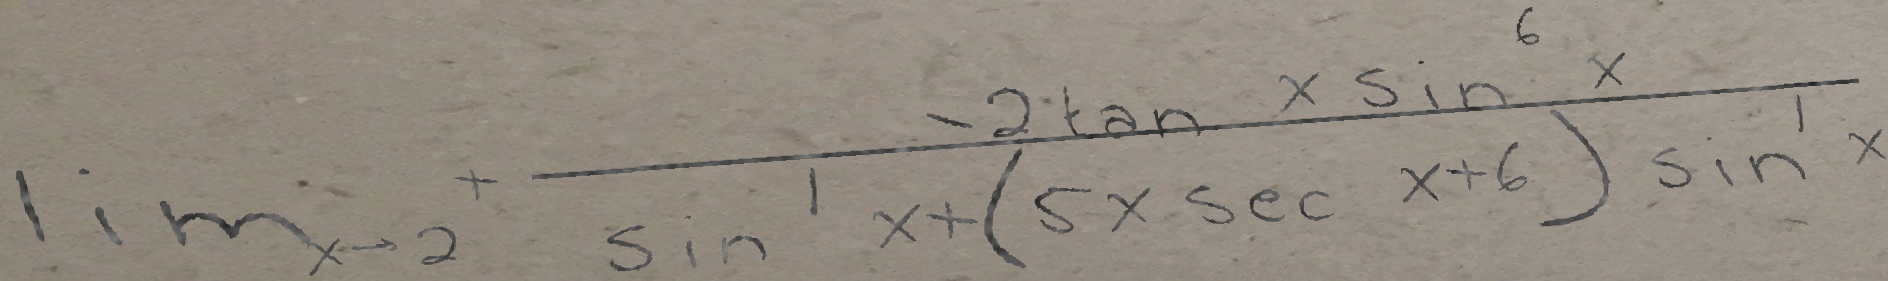 \lim_{x \to 2^+} \frac{-2 \tan x \sin^6 x}{\sin^1 x + (5x \sec x + 6) \sin^1 x}